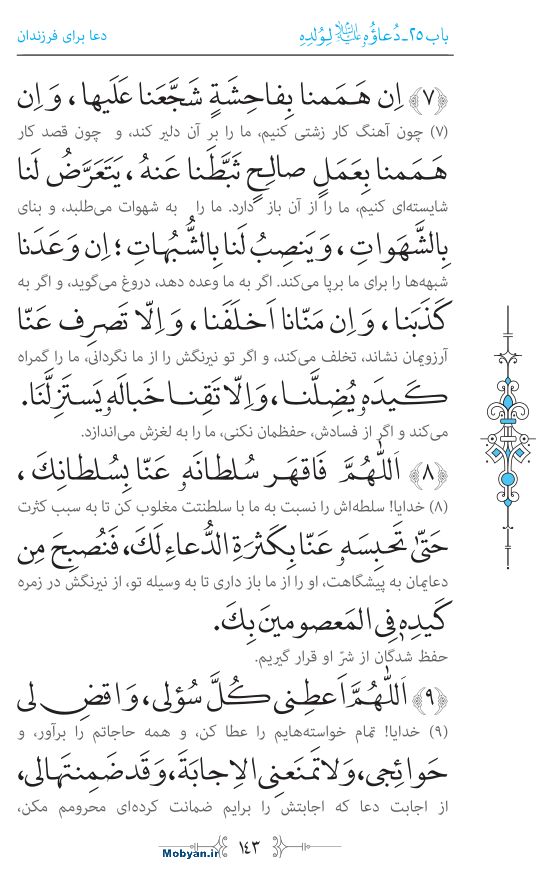 باب ۲۵ـ دُعاؤُهُ عليه‌السلام لِوُلدِهِ
دعا برای فرزندان
﴿۷﴾ اِن هَمَمنا بِفاحِشَةٍ شَجَّعَنا عَلَيها، وَ اِن
(۷) چون آهنگ کار زشتی کنیم، ما را بر آن دلیر کند، و چون قصد کار
هَمَمنا بِعَمَلٍ صالِحٍ ثَبَّطَنا عَنهُ، يَتَعَرَّضُ لَنا
شایسته‌ای کنیم، ما را از آن باز دارد. ما را به شهوات می‌طلبد، و بنای
بِالشَّهَواتِ، وَ يَنصِبُ لَنا بِالشُّبُهاتِ؛ اِن وَعَدَنا
شبهه‌ها را برای ما برپا می‌کند. اگر به ما وعده دهد، دروغ می‌گوید، و اگر به
كَذَبَنا، وَ اِن مَنّانا اَخلَفَنا، وَ اِلّا تَصرِف عَنّا
آرزویمان نشاند، تخلف می‌کند، و اگر تو نیرنگش را از ما نگردانی، ما را گمراه
كَيدَهُ يُضِلَّنا، وَ اِلّا تَقِنا خَبالَهُ يَستَزِلَّنا.
می‌کند و اگر از فسادش، حفظمان نکنی، ما را به لغزش می‌اندازد.
﴿۸﴾ اَللّٰهُمَّ فَاقهَر سُلطانَهُ عَنّا بِسُلطانِكَ،
(۸) خدایا! سلطه‌اش را نسبت به ما با سلطنتت مغلوب کن تا به سبب کثرت
حَتّىٰ تَحبِسَهُ عَنّا بِكَثرَةِ الدُّعاءِ لَكَ، فَنُصبِحَ مِن
دعایمان به پیشگاهت، او را از ما باز داری تا به وسیله تو، از نیرنگش در زمره
كَيدِهِ فِى المَعصومينَ بِكَ.
حفظ شدگان از شرّ او قرار گیریم.
﴿۹﴾ اَللّٰهُمَّ اَعطِنى كُلَّ سُؤلى، وَ اقضِ لى
(۹) خدایا! تمام خواسته‌هایم را عطا کن، و همه حاجاتم را برآور، و
حَوائِجى، وَ لا تَمنَعنِى الاِجابَةَ، وَ قَد ضَمِنتَها لى،
از اجابت دعا که اجابتش را برایم ضمانت کرده‌ای محرومم مکن،
۱۴۳
Mobyan.ir